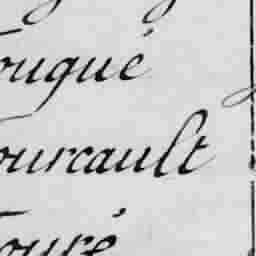 ouqué
ourcault
ouré